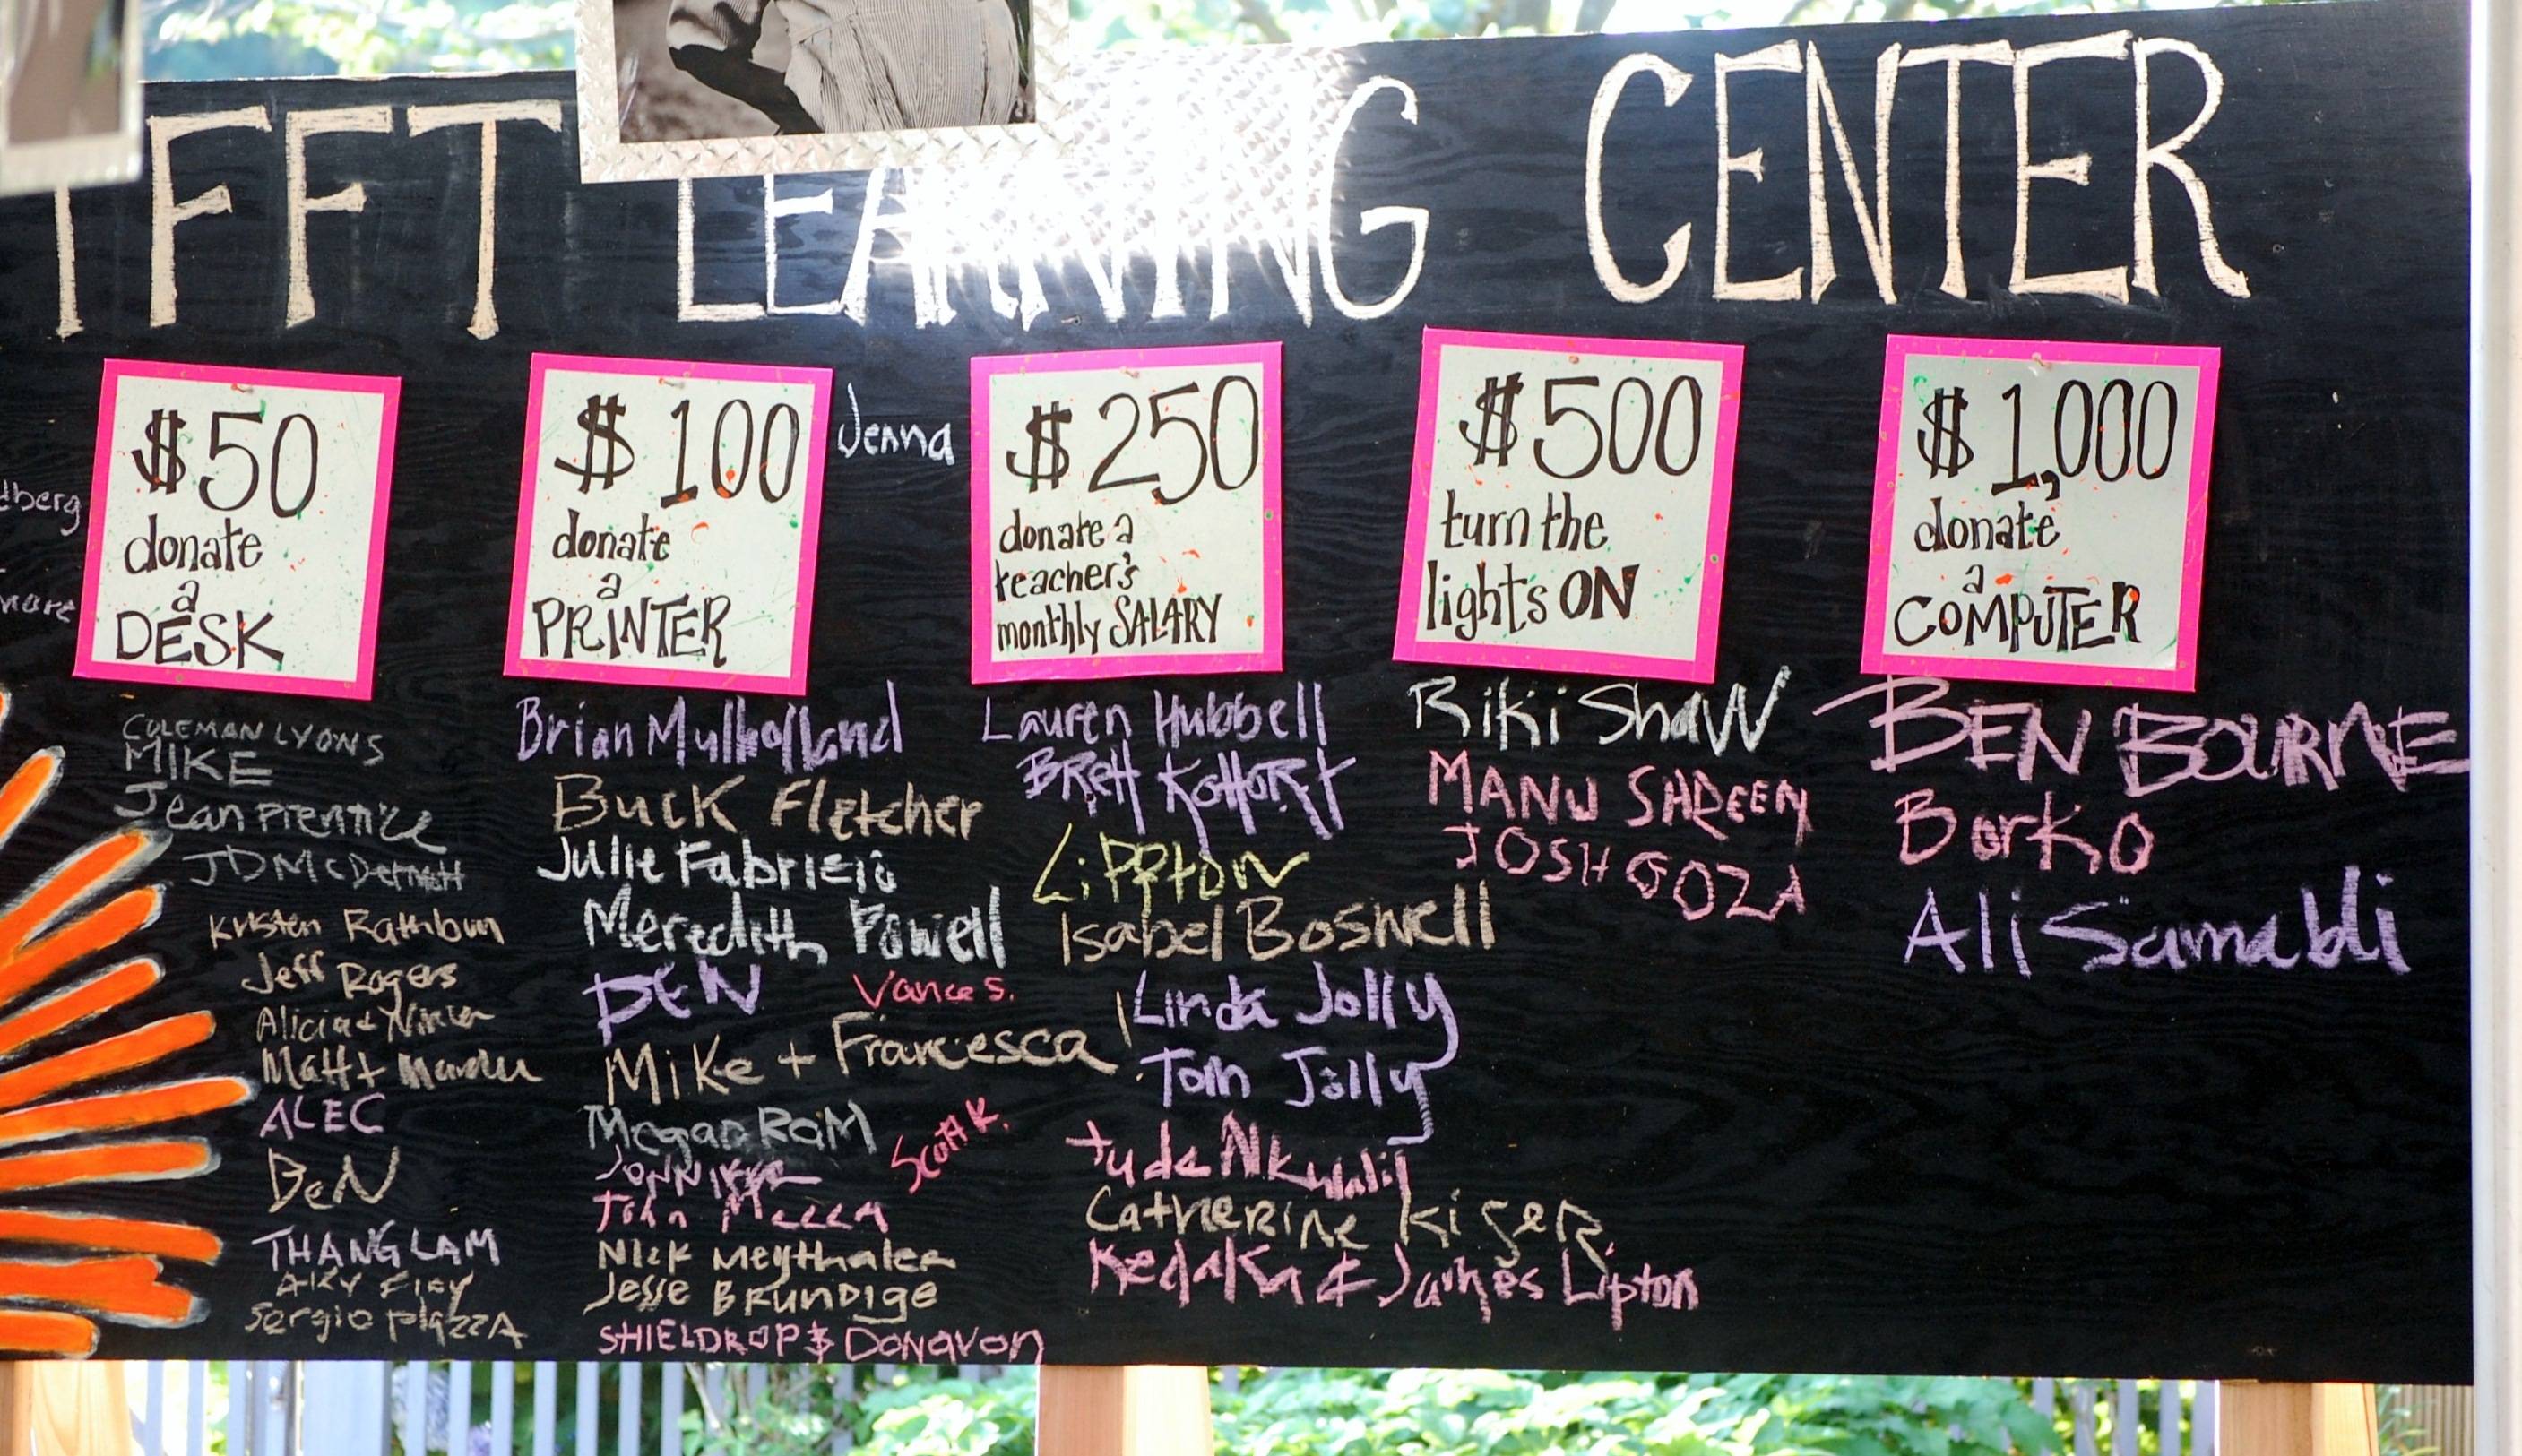 TFFT LEARNING CENTER
$50
donate
a
DESK
$100
donate
a
PRINTER
Jenna
$250
donate a
teacher's
monthly SALARY
$500
turn the
lights ON
$1,000
donate
a
COMPUTER
dberg
COLEMAN LYONS
MIKE
Jean Prentice
JD McDermott
Kristen Rathbun
Jeff Rogers
Alicia +
Matt +
ALEC
BEN
THANG LAM
Sergio PlazzA
Brian Mulholland
Buck Fletcher
Julie
Meredith Powell
BEN
Vance S.
Mike + Francesca
Megan RaM
Scott K.
John
Nick Meythaler
Jesse BRUNDIGE
SHIELDROP $ Donavon
Lauren Hubbell
BREtt
Lippton
Isabel Boswell
Linda Jolly
Tom Jolly
Catherine Kiser
& James Lipton
Riki Shaw
MANU
JOSH GOZA
BEN BOURNE
Borko
Ali